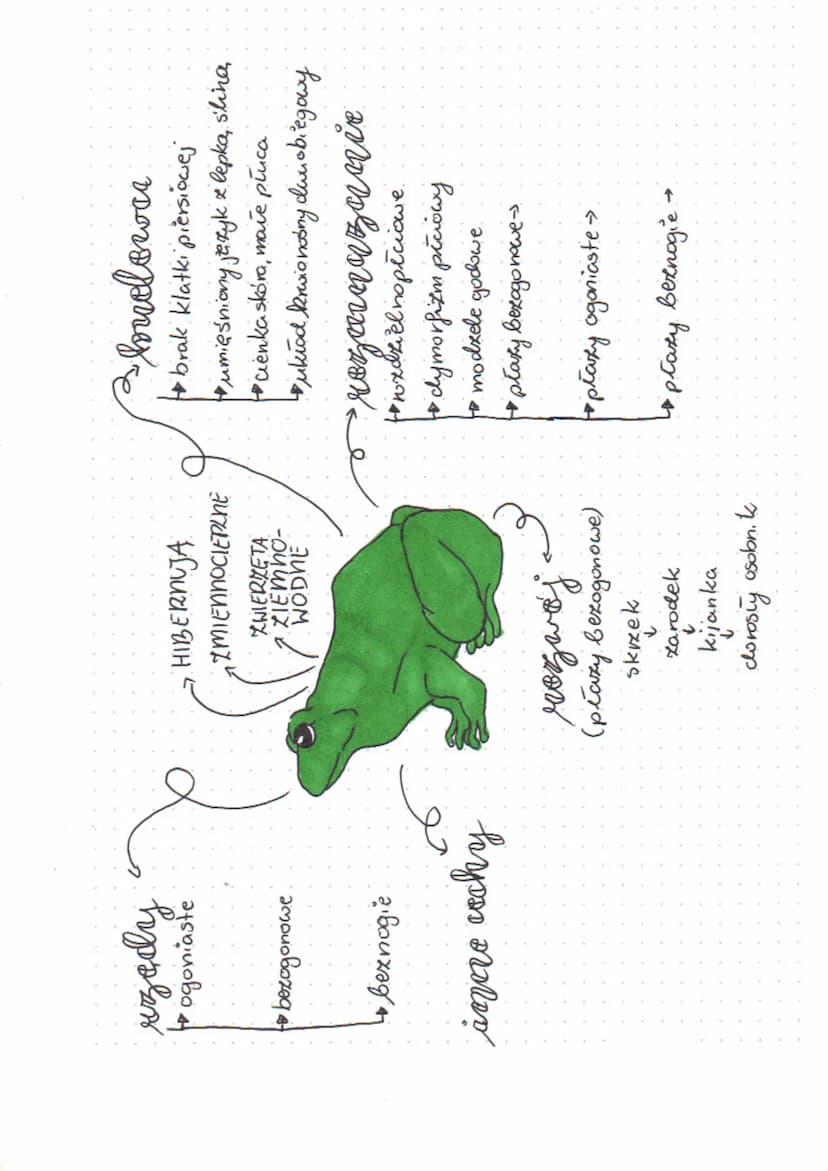 rzędy
ogoniaste
bezogonowe
beznogie
HIBERNUJĄ
ZMIENNOCIEPLNE
ZWIERZĘTA
ZIEMNO-
WODNE
budowa
brak klatki piersiowej
umięśniony język z lepką śliną
cienka skóra, małe płuca
układ krwionośny dwuobiegowy
rozmnażanie
rozdzielnopłciowe
dymorfizm płciowy
modzele godowe
płazy bezogonowe →
płazy ogoniaste →
płazy beznogie →
inne cechy
rozwój
(płazy bezogonowe)
skrzek
↓
zarodek
↓
kijanka
↓
dorosły osobnik